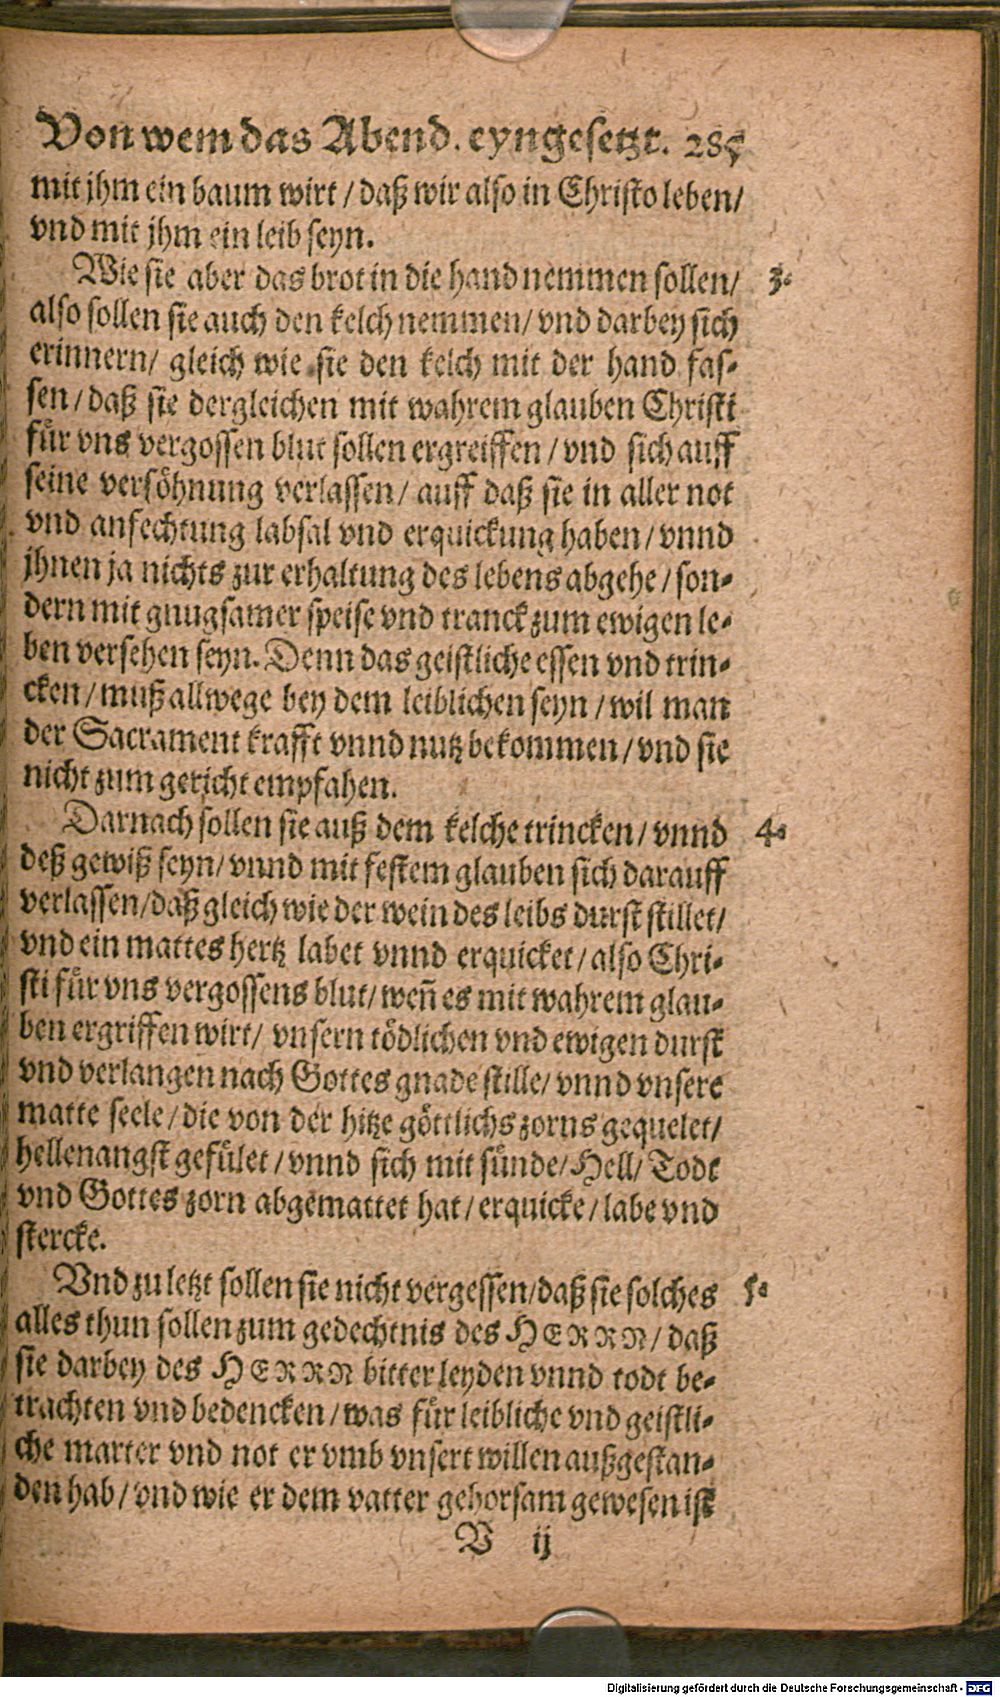 Von wem das Abend. eyngesetzt. 285
mit jhm ein baum wirt / daß wir also in Christo leben /
vnd mit jhm ein leib seyn.
Wie sie aber das brot in die hand nemmen sollen / 3.
also sollen sie auch den kelch nemmen / vnd darbey sich
erinnern / gleich wie sie den kelch mit der hand fas-
sen / daß sie dergleichen mit wahrem glauben Christi
für vns vergossen blut sollen ergreiffen / vnd sich auff
seine versöhnung verlassen / auff daß sie in aller not
vnd anfechtung labsal vnd erquickung haben / vnnd
jhnen ja nichts zur erhaltung des lebens abgehe / son-
dern mit gnugsamer speise vnd tranck zum ewigen le-
ben versehen seyn. Denn das geistliche essen vnd trin-
cken / muß allwege bey dem leiblichen seyn / wil man
der Sacrament krafft vnnd nutz bekommen / vnd sie
nicht zum gericht empfahen.
Darnach sollen sie auß dem kelche trincken / vnnd 4.
deß gewiß seyn / vnnd mit festem glauben sich darauff
verlassen / daß gleich wie der wein des leibs durst stillet /
vnd ein mattes hertz labet vnnd erquicket / also Chri-
sti für vns vergossens blut / weñ es mit wahrem glau-
ben ergriffen wirt / vnsern tödlichen vnd ewigen durst
vnd verlangen nach Gottes gnade stille / vnnd vnsere
matte seele / die von der hitze göttlichs zorns gequelet /
hellenangst gefület / vnnd sich mit sünde / Hell / Todt
vnd Gottes zorn abgemattet hat / erquicke / labe vnd
stercke.
Vnd zu letzt sollen sie nicht vergessen / daß sie solches 5.
alles thun sollen zum gedechtnis des HERRN / daß
sie darbey des HERRN bitter leyden vnnd todt be-
trachten vnd bedencken / was für leibliche vnd geistli-
che marter vnd not er vmb vnsert willen außgestan-
den hab / vnd wie er dem vatter gehorsam gewesen ist
V ij
Digitalisierung gefördert durch die Deutsche Forschungsgemeinschaft - DFG